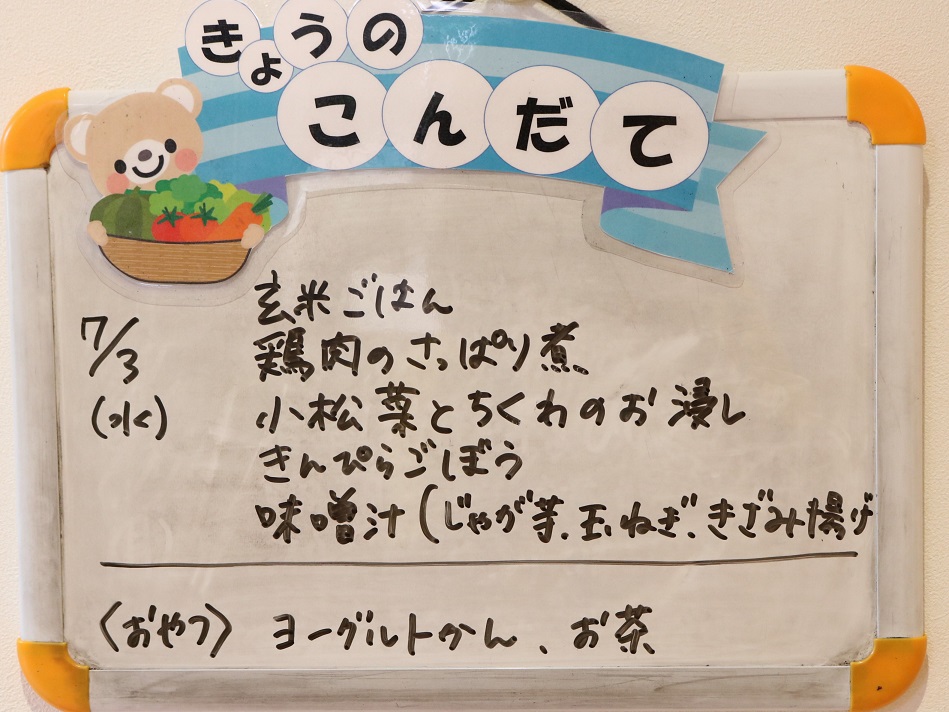 きょうの
こんだて
玄米ごはん
7/3
鶏肉のさっぱり煮
(水)
小松菜とちくわのお浸し
きんぴらごぼう
味噌汁(じゃが芋、玉ねぎ、きざみ揚げ
〈おやつ〉 ヨーグルトかん、お茶